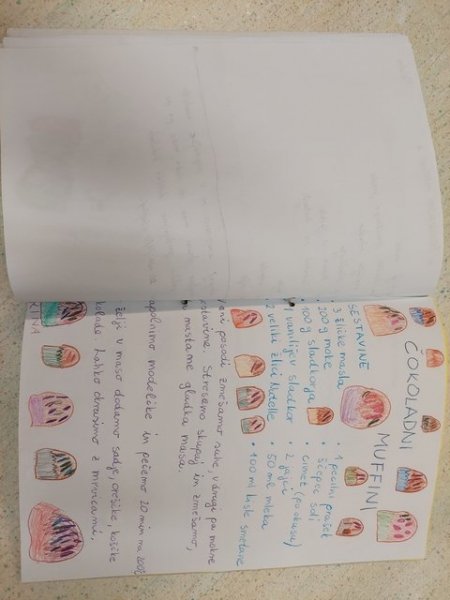 ČOKOLADNI
MUFFINI
SESTAVINE
• 3 žličke masla • 1 pecilni prašek
• 200g moke • ščepec soli
• 100g sladkorja • cimet (po okusu)
1 vanilijev sladkor • 2 jajci
2 veliki žlici Nutelle • 50 ml mleka
• 100 ml kisle smetane
posodi zmešamo suhe, v drugi pa mokre
stavine. Stresemo skupaj in zmešamo,
nastane gladka masa.
apolnimo modelčke in pečemo 20 min na
želji v maso dodamo sadje, oreščke, koščke
kolade. Lahko okrasimo z mrvicami.